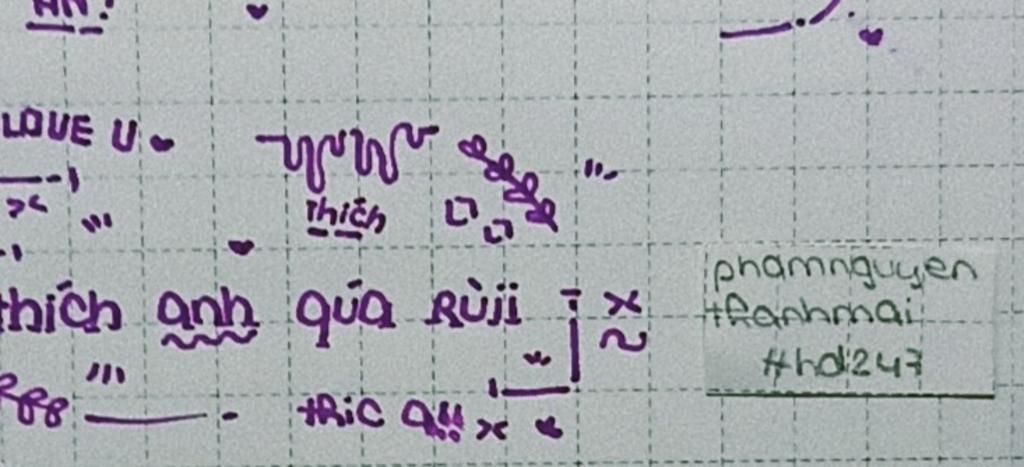 AN!
LOVE U
thích
thích anh qúa Rùji
thic a!!
phamnguyen
thanhmai
#hd247